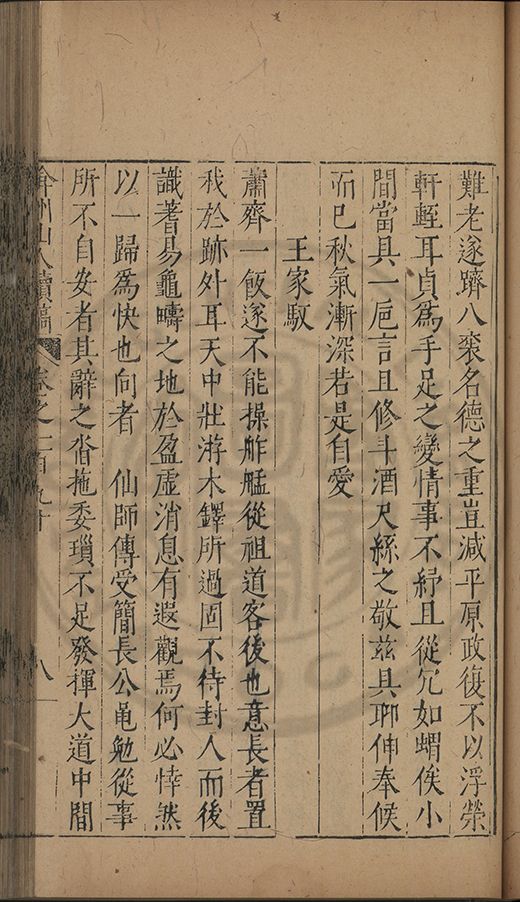 難老遂躋八袠名德之重豈減平原政復不以浮榮
軒輊耳貞爲手足之變情事不紓且從冗如蝟俟小
間當具一巵言且修斗酒尺絲之敬兹具聊伸奉候
而已秋氣漸深若是自愛
王家馭
蕭齊一飯遂不能操舴艋從祖道客後也意長者置
我於跡外耳天中壯游木鐸所過固不待封人而後
識蓍易龜疇之地於盈虛消息有遐觀焉何必悻然
以一歸爲快也向者 仙師傳受簡長公黽勉從事
所不自安者其辭之沓拖委瑣不足發揮大道中間
弇州山人續稿 卷之一百九十 八